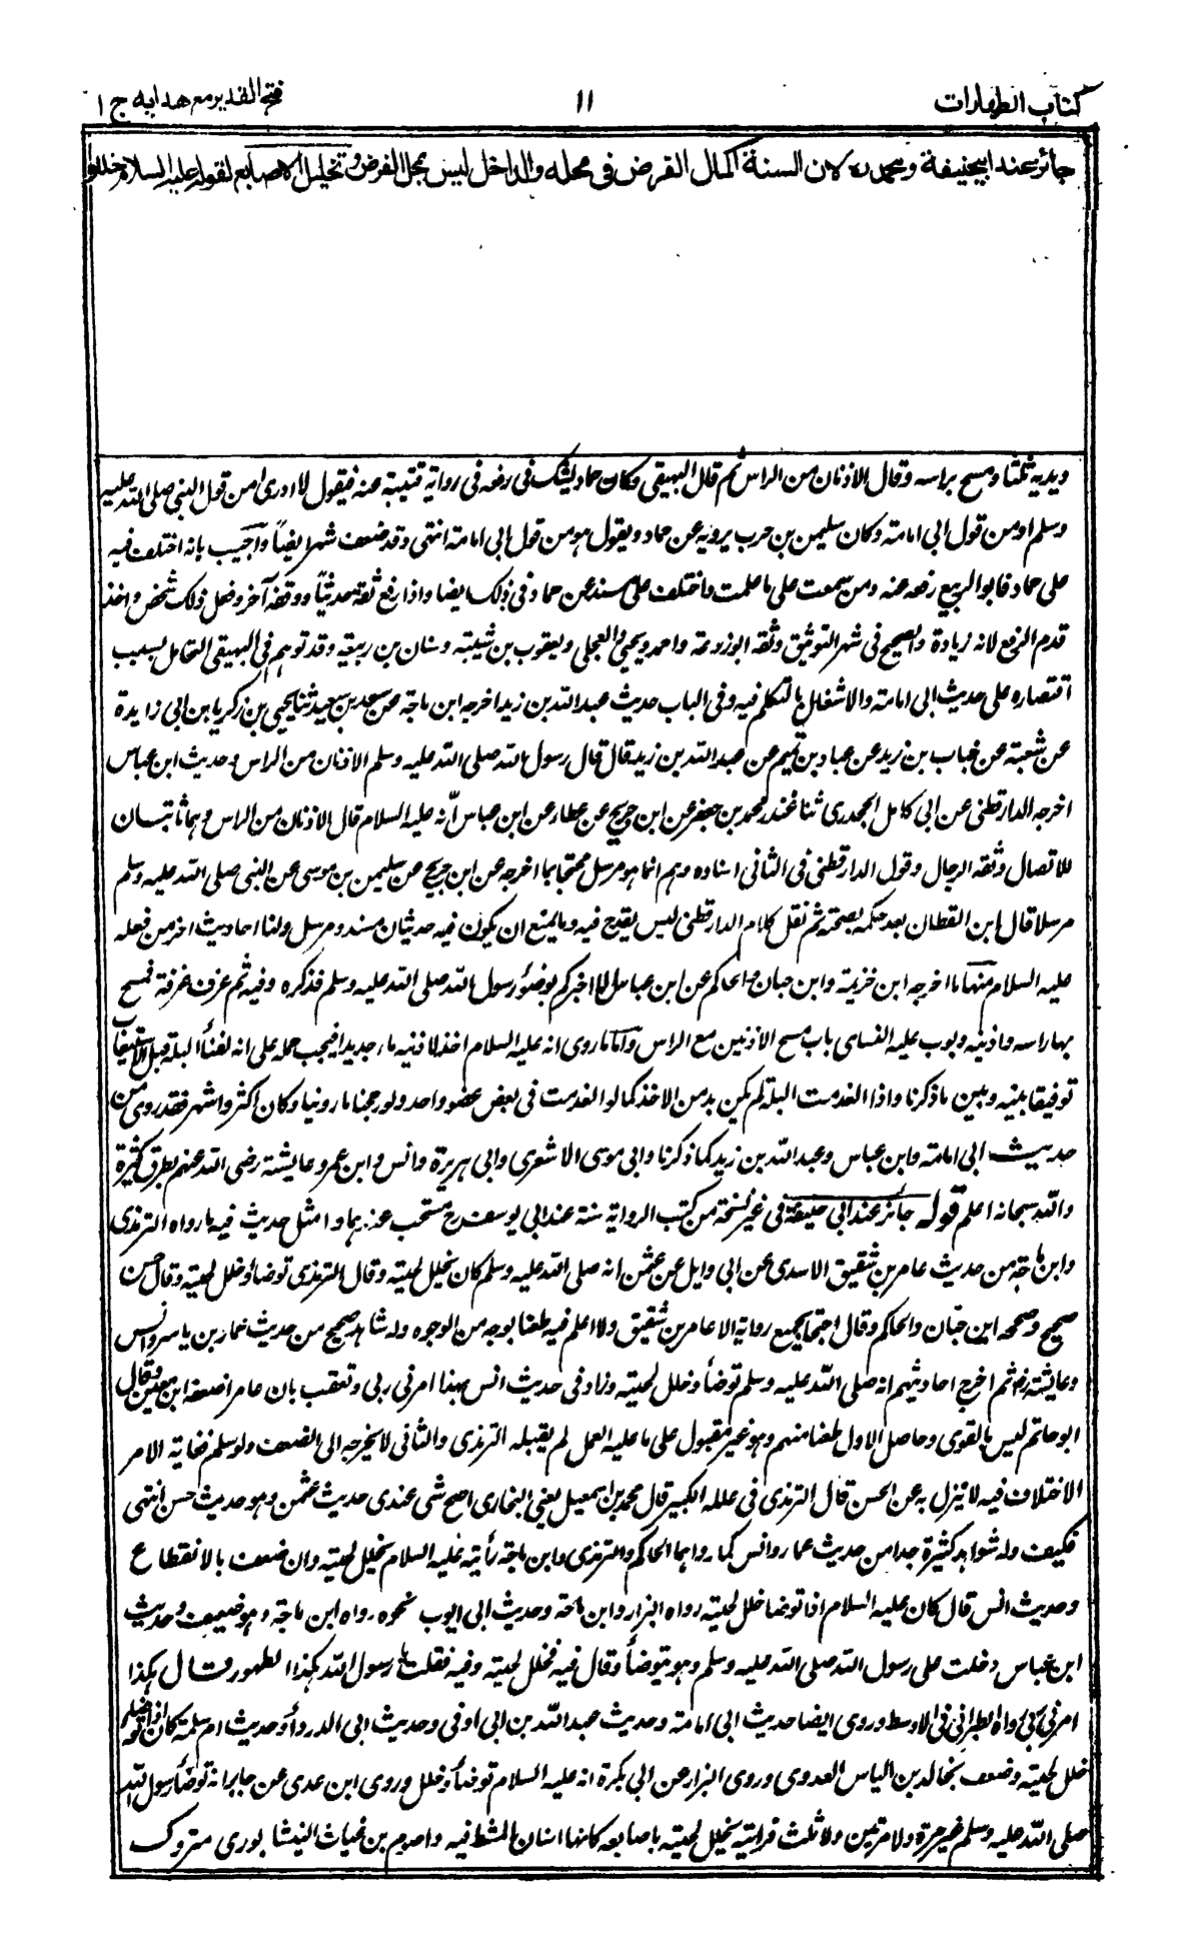 كتاب الطهارات
١١
فتح القدير مع هدايه ج ١
جائز عند ابيحنيفة ومحمد ره لان السنة اكمال الفرض فى محله والداخل ليس بمحل الفرض وتخليل الاصابع لقوله عليه السلام خللوا
ويديه ثلثا ومسح براسه وقال الاذنان من الراس ثم قال البهيقى وكان حماد يشك فى رفعه فى رواية قتيبة عنه فيقول لا ادرى امن قول النبى صلى الله عليه
وسلم او من قول ابى امامة وكان سليمن بن حرب يرويه عن حماد ويقول هو من قول ابى امامة انتهى وقد ضعف شهر ايضا واجيب بانه اختلف فيه
على حماد فابو الربيع رفعه عنه ومن سمعت على ما علمت واختلف على مسدد عن حماد فى ذلك ايضا واذا رفع ثقة حديثا ووقفه آخر وفعل ذلك شخص واحد
قدم الرفع لانه زيادة والصحيح فى شهر التوثيق وثقه ابو زرعة واحمد ويحيى والعجلى ويعقوب بن شيبة وسنان بن ربيعة وقد توهم فى البهيقى التحامل بسبب
اقتصاره على حديث ابى امامة والاشغال بالتكلم فيه وفى الباب حديث عبد الله بن زيد اخرجه ابن ماجة عن سعد بن سعيد ثنا يحيى بن زكريا بن ابى زايدة
عن شعبة عن خباب بن زيد عن عباد بن تميم عن عبد الله بن زيد قال قال رسول الله صلى الله عليه وسلم الاذنان من الراس وحديث ابن عباس
اخرجه الدارقطنى عن ابى كامل الجحدرى ثنا غندر محمد بن جعفر عن ابن جريج عن عطاء عن ابن عباس انه عليه السلام قال الاذنان من الراس وهما ثابتان
للاتصال وثقه الرجال وقول الدارقطنى فى الثانى اسناده وهم انما هو مرسل محتجا بما اخرجه عن ابن جريج عن سليمن بن موسى عن النبى صلى الله عليه وسلم
مرسلا قال ابن القطان بعد حكمه بصحته ثم نقل كلام الدارقطنى ليس يقدح فيه وما يمنع ان يكون فيه حديثان مسند ومرسل ولنا احاديث اخر من فعله
عليه السلام منها ما اخرجه ابن خزيمة وابن حبان والحاكم عن ابن عباس الا اخبركم بوضوء رسول الله صلى الله عليه وسلم فذكره وفيه ثم غرف غرفة فمسح
بها راسه واذنيه وبوب عليه النساى باب مسح الاذنين مع الراس واما ما روى انه عليه السلام اخذ لاذنيه ماء جديدا فيجب حمله على انه لفناء البلة قبل الاستيعاب
توفيقا بينه وبين ما ذكرنا واذا انعدمت البلة لم يكن بد من الاخذ كما لو انعدمت فى بعض عضو واحد ولو رجحنا ما روينا وكان اكثر واشهر فقد روى من
حديث ابى امامة وابن عباس وعبد الله بن زيد كما ذكرنا وابى موسى الاشعرى وابى هريرة وانس وابن عمر وعايشة رضى الله عنهم بطرق كثيرة
والله سبحانه اعلم قوله جائز عند ابى حنيفة فى غير نسخة من كتب الرواية سنة عند ابى يوسف رح مستحب عندهما وامثل حديث فيه ما رواه الترمذى
وابن ماجة من حديث عامر بن شقيق الاسدى عن ابى وايل عن عثمن انه صلى الله عليه وسلم كان يخلل لحيته وقال الترمذى توضأ وخلل لحيته وقال حسن
صحيح وصححه ابن حبان والحاكم وقال احتجا بجميع رواية الا عامر بن شقيق ولا اعلم فيه طعنا بوجه من الوجوه وله شاهد صحيح من حديث عمار بن ياسر وانس
وعايشة رض ثم اخرج احاديثهم انه صلى الله عليه وسلم توضأ وخلل لحيته وزاد فى حديث انس بهذا امرنى ربى وتعقب بان عامرا ضعفه ابن معين وقال
ابو حاتم ليس بالقوى وحاصل الاول طعنا منهم وهو غير مقبول على ما عليه العمل لم يقبله الترمذى والثانى لا يخرجه الى الضعف ولو سلم فغاية الامر
الاختلاف فيه لا تنزل به عن الحسن قال الترمذى فى علله الكبير قال محمد بن اسمعيل يعنى البخارى اصح شى عندى حديث عثمن وهو حديث حسن انتهى
فكيف وله شواهد كثيرة جدا من حديث عمار وانس كما رواهما الحاكم والترمذى وابن ماجة رأيته عليه السلام يخلل لحيته وان ضعف بالانقطاع
وحديث انس قال كان عليه السلام اذا توضا خلل لحيته رواه البزار وابن ماجة وحديث ابى ايوب نحوه رواه ابن ماجة وهو ضعيف وحديث
ابن عباس دخلت على رسول الله صلى الله عليه وسلم وهو يتوضأ وقال فيه فخلل لحيته وفيه فقلت يا رسول الله هكذا الطهور قال هكذا
امرنى ربى رواه الطبرانى فى الاوسط وروى ايضا حديث ابى امامة وحديث عبد الله بن ابى اوفى وحديث ابى الدرداء وحديث ام سلمة كان اذا توضأ
خلل لحيته وضعف بخالد بن الياس العدوى وروى البزار عن ابى بكرة انه عليه السلام توضأ وخلل وروى ابن عدى عن جابر انه توضأ رسول الله
صلى الله عليه وسلم غير مرة ولا مرتين ولا ثلث فرأيته يخلل لحيته باصابعه كانها اسنان المشط فيه واصرم بن غياث النيشابورى متروك